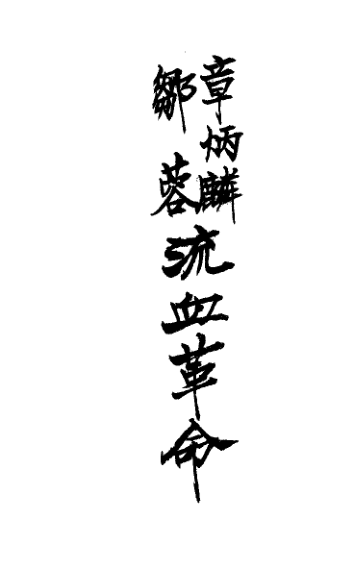 章炳麟
鄒蓉
流血革命